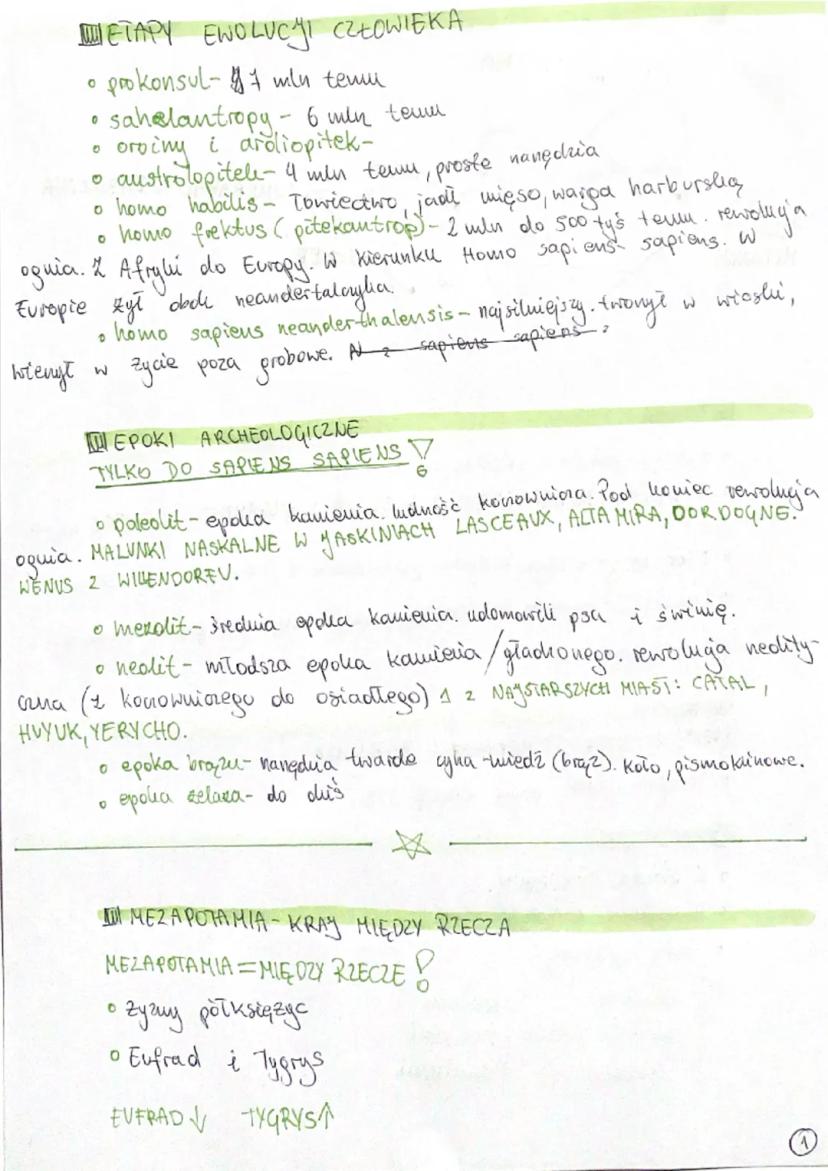 III ETAPY EWOLUCJI CZŁOWIEKA
• prokonsul- 17 mln temu
• sahelantropy - 6 mln temu
• oroiny i ardiopitek-
• australopitek- 4 mln temu, proste narzędzia
• homo habilis - łowiectwo, jadł mięso, warga harburską
• homo frektus (pitekantrop) - 2 mln do 500 tyś temu. rewolucja
ognia. Z Afryki do Europy. W kierunku Homo sapiens sapiens. W
Europie żył obok neandertalczyka.
• homo sapiens neanderthalensis - najsilniejszy. tworzył w wioski,
wierzył w życie poza grobowe. N z sapiens sapiens?
III EPOKI ARCHEOLOGICZNE
TYLKO DO SAPIENS SAPIENS !
• poleolit - epoka kamienia. ludność koczownicza. Pod koniec rewolucja
ognia. MALUNKI NASKALNE W JASKINIACH LASCEAUX, ALTA MIRA, DORDOGNE.
WENUS Z WILLENDORFU.
• mezolit - średnia epoka kamienia. udomowili psa i świnię.
• neolit - młodsza epoka kamienia / gładzonego. rewolucja neolity-
czna (z koczowniczego do osiadłego) 1 z NAJSTARSZYCH MIAST: CATAL,
HUYUK, YERYCHO.
• epoka brązu - narzędzia twarde cyna + miedź (brąz). Koło, pismo klinowe.
• epoka żelaza - do dziś
III MEZAPOTAMIA - KRAJ MIĘDZY RZECZA
MEZAPOTAMIA = MIĘDZY RZECZE !
• żyzny półksiężyc
• Eufrad i Tygrys
EUFRAD ↓ TYGRYS ↑
1